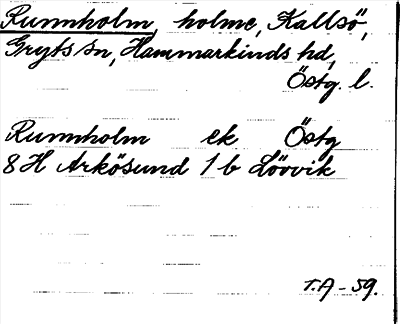 Rumholm, holme, Kallsö,
Gryts sn, Hammarkinds hd,
Östg. l.
Rumholm ek Östg
8 H Arkösund 1 b Lövvik
T.A - 59.